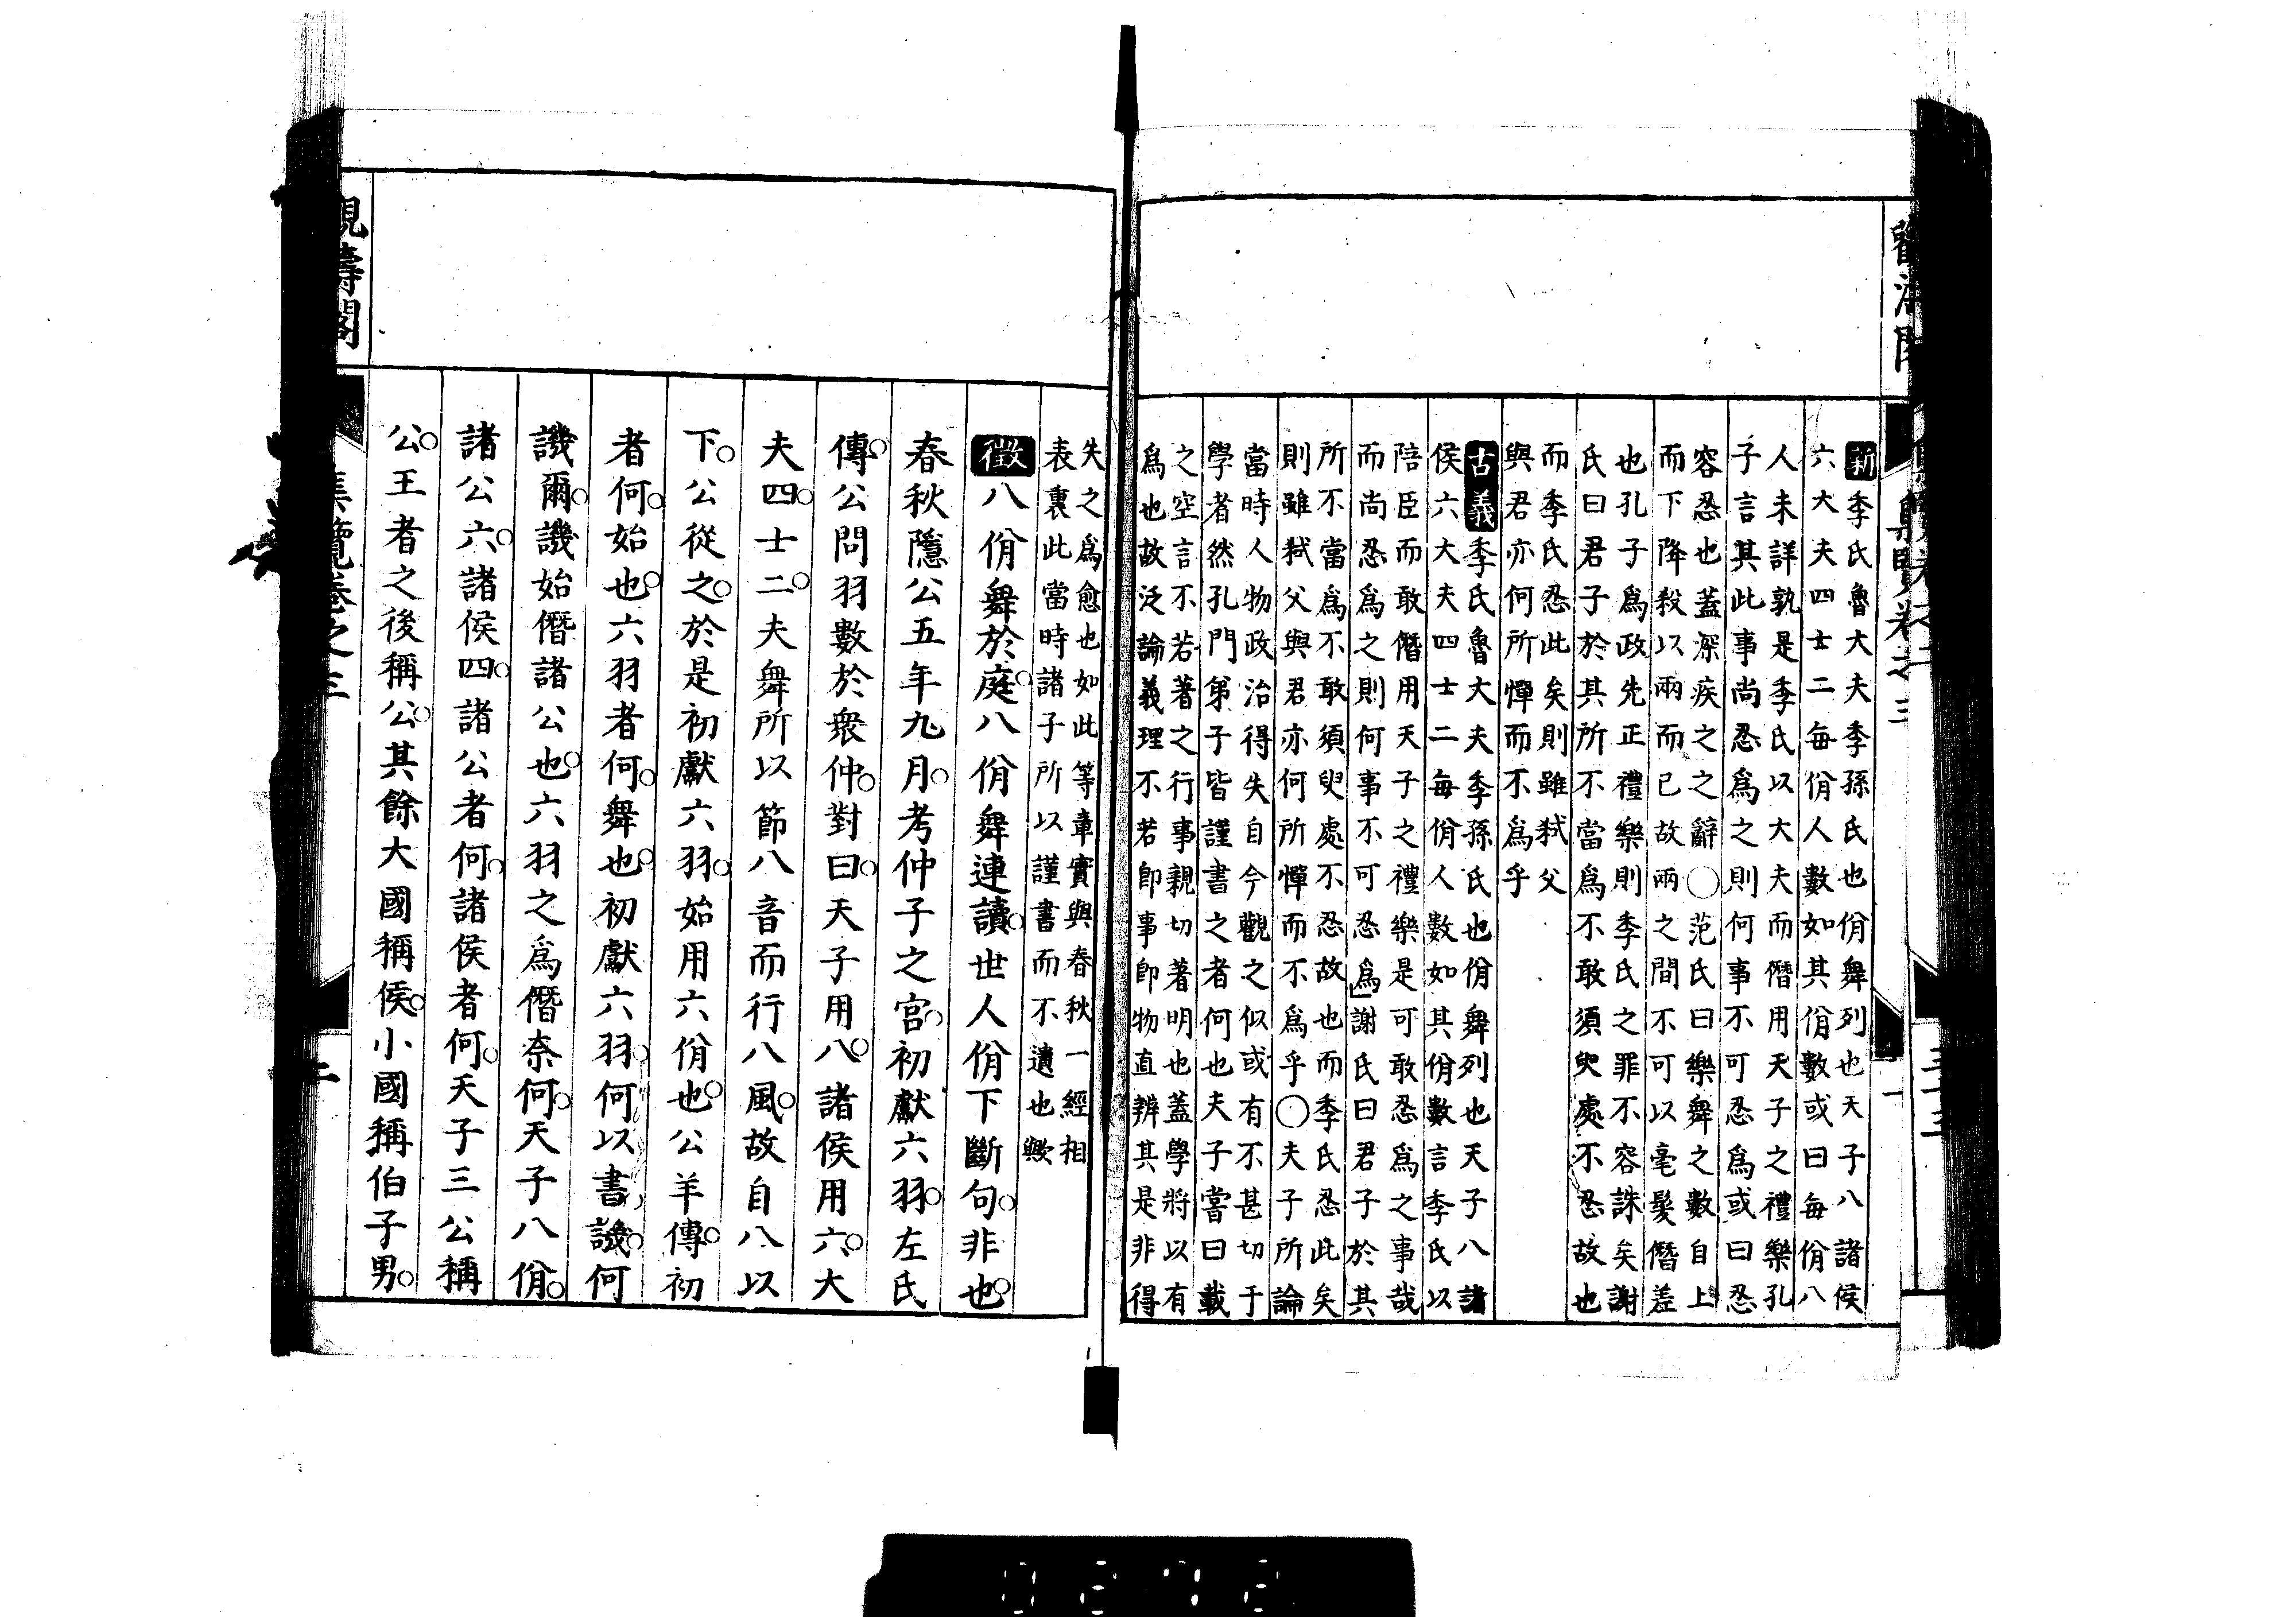 新 季氏魯大夫季孫氏也佾舞列也天子八諸侯
六大夫四士二每佾人數如其佾數或曰每佾八
人未詳孰是季氏以大夫而僭用天子之禮樂孔
子言其此事尚忍爲之則何事不可忍爲或曰忍
容忍也蓋深疾之之辭○范氏曰樂舞之數自上
而下降殺以兩而已故兩之間不可以毫髮僭差
也孔子爲政先正禮樂則季氏之罪不容誅矣謝
氏曰君子於其所不當爲不敢須臾處不忍故也
而季氏忍此矣則雖弒父
與君亦何所憚而不爲乎
古義 季氏魯大夫季孫氏也佾舞列也天子八諸
侯六大夫四士二每佾人數如其佾數言季氏以
陪臣而敢僭用天子之禮樂是可敢忍爲之事哉
而尚忍爲之則何事不可忍爲」謝氏曰君子於其
所不當爲不敢須臾處不忍故也而季氏忍此矣
則雖弒父與君亦何所憚而不爲乎○夫子所論
當時人物政治得失自今觀之似或有不甚切于
學者然孔門第子皆謹書之者何也夫子嘗曰載
之空言不若著之行事親切著明也蓋學將以有
爲也故泛論義理不若卽事卽物直辨其是非得
失之爲愈也如此等章實與春秋一經相
表裏此當時諸子所以謹書而不遺也歟
徵 八佾舞於庭八佾舞連讀世人佾下斷句非也
春秋隱公五年九月考仲子之宮初獻六羽左氏
傳公問羽數於衆仲對曰天子用八諸侯用六大
夫四士二夫舞所以節八音而行八風故自八以
下公從之於是初獻六羽始用六佾也公羊傳初
者何始也六羽者何舞也初獻六羽何以書譏何
譏爾譏始僭諸公也六羽之爲僭奈何天子八佾
諸公六諸侯四諸公者何諸侯者何天子三公稱
公王者之後稱公其餘大國稱侯小國稱伯子男
集覽卷之三
二